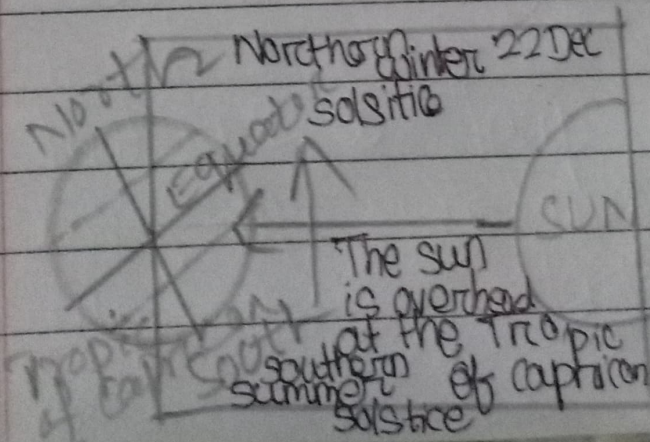 North
Northern Winter 22 Dec
solsitice
Equator
SUN
The sun
is overhead
at the Tropic
of capricon
Tropic
of Capri
South
southern
summer
solstice